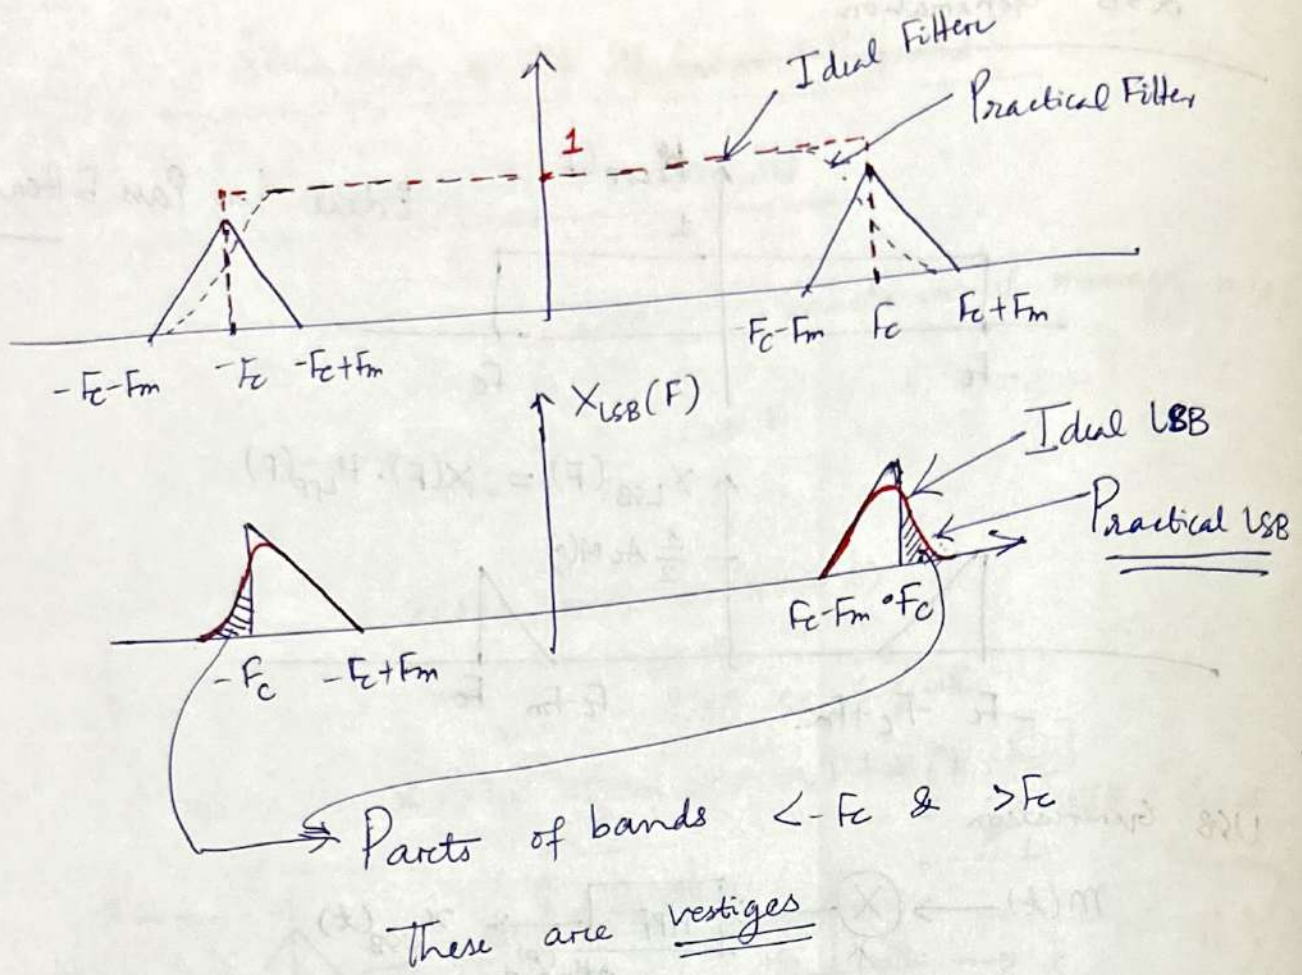 Ideal Filter
Practical Filter
1
-Fc-Fm -Fc -Fc+Fm
Fc-Fm Fc Fc+Fm
XLSB(F)
Ideal LSB
Practical LSB
-Fc -Fc+Fm
Fc-Fm Fc
Parts of bands <-Fc & >Fc
These are vestiges